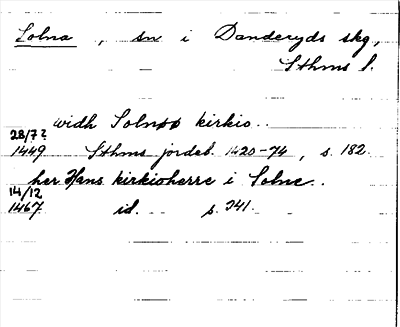 Solna, sn i Danderyds skg,
Sthms l.
widh Solnøø kirkio..
28/7 ?
1449 Sthms jordeb. 1420-74, s. 182.
her Hans kirkioherre i Solne..
14/12
1467 id. s. 241.